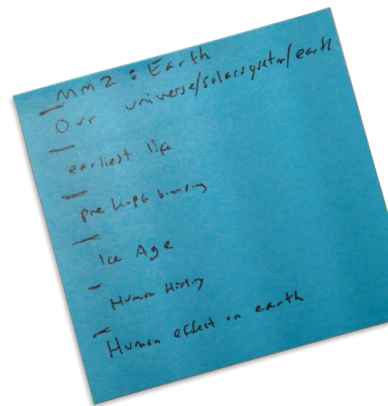 MM2 : Earth
- Our universe/solarsystem/earth
- earliest life
- pre
- Ice Age
- Human History
- Human effect on earth